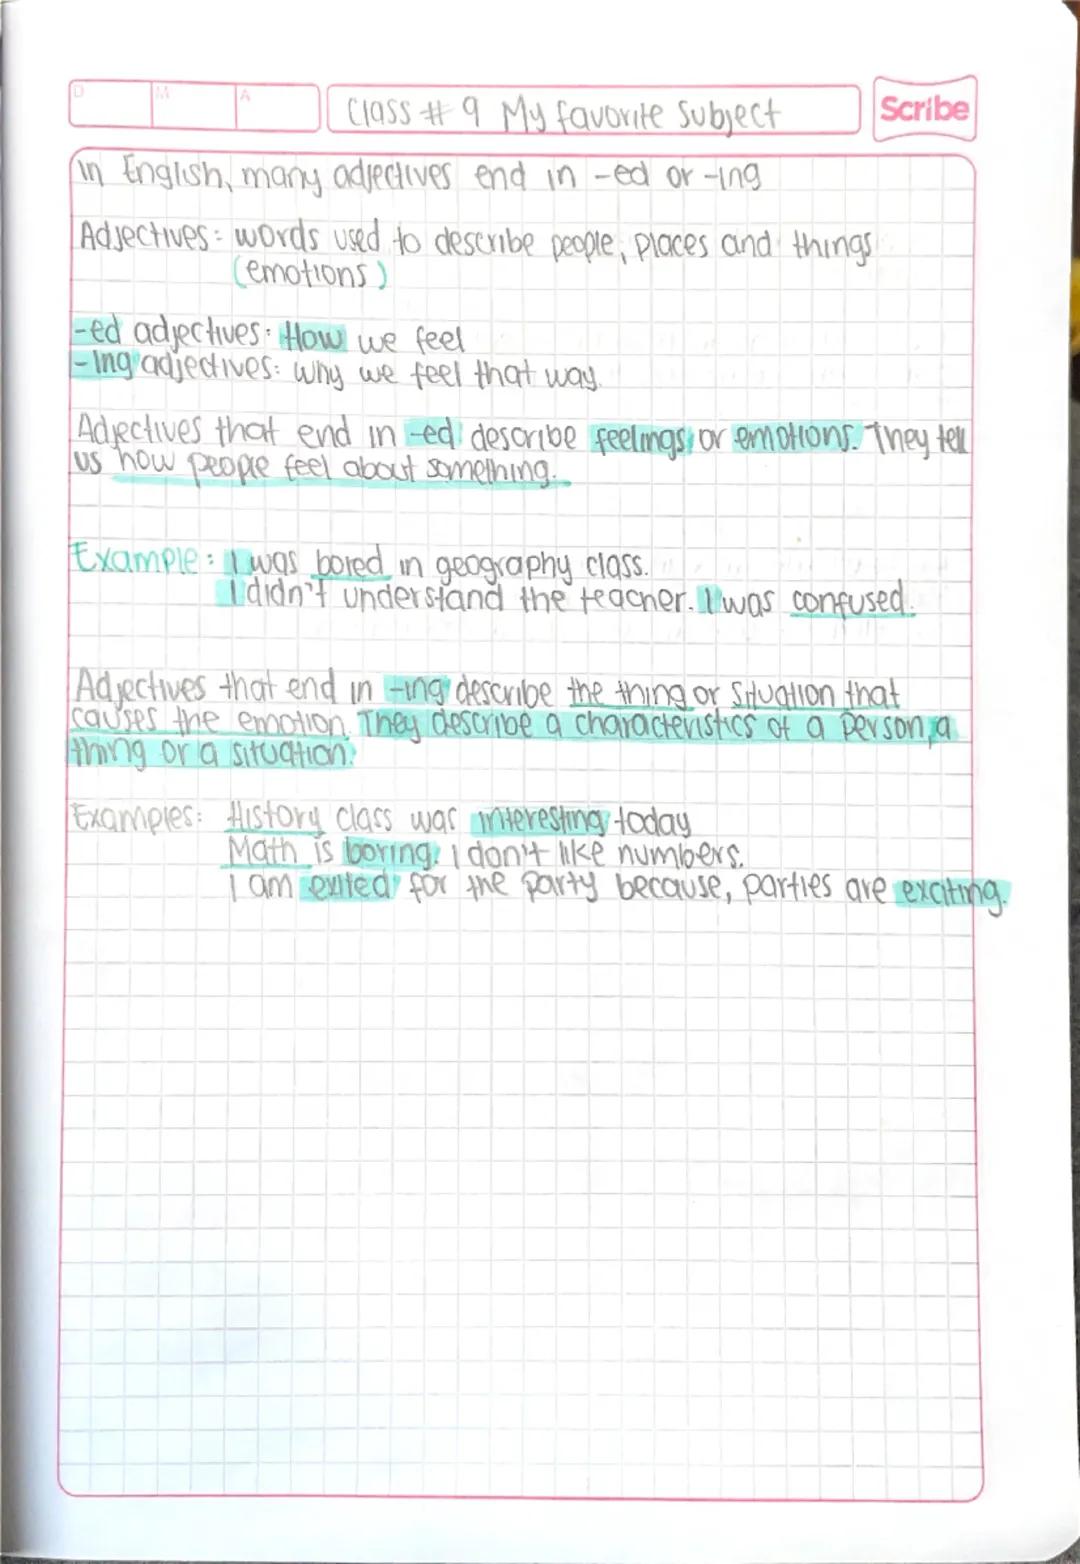 D M A
Class # 9 My favorite Subject
Scribe
In English, many adjectives end in -ed or -ing
Adjectives: words used to describe people, places and things
(emotions)
-ed adjectives: How we feel
-Ing adjectives: why we feel that way.
Adjectives that end in -ed describe feelings or emotions. They tell
us how people feel about something.
Example: I was bored in geography class.
I didn't understand the teacher. I was confused.
Adjectives that end in -ing describe the thing or situation that
causes the emotion. They describe a characteristics of a person, a
thing or a situation.
Examples: History class was interesting today
Math is boring. I don't like numbers.
I am exited for the party because, parties are exciting.